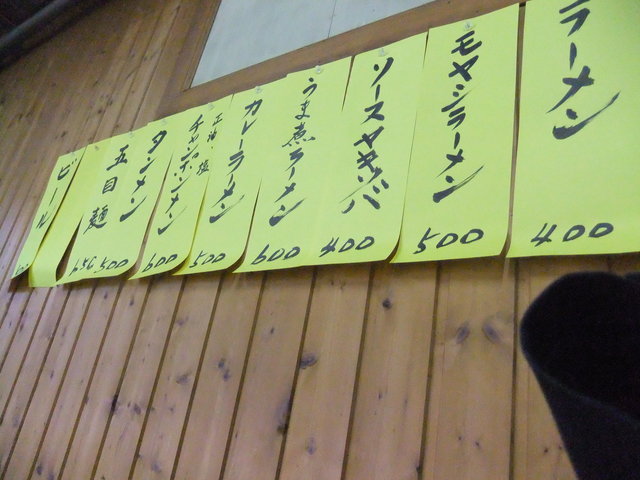 ラーメン
400
モヤシラーメン
500
ソースヤキソバ
400
うま煮ラーメン
600
カレーラーメン
500
正油・塩
チャンポンメン
600
タンメン
500
五目麺
ビール